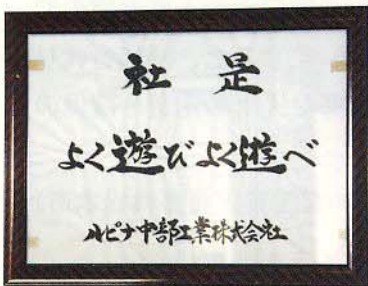 社是
よく遊びよく遊べ
ルピナ中部工業株式会社